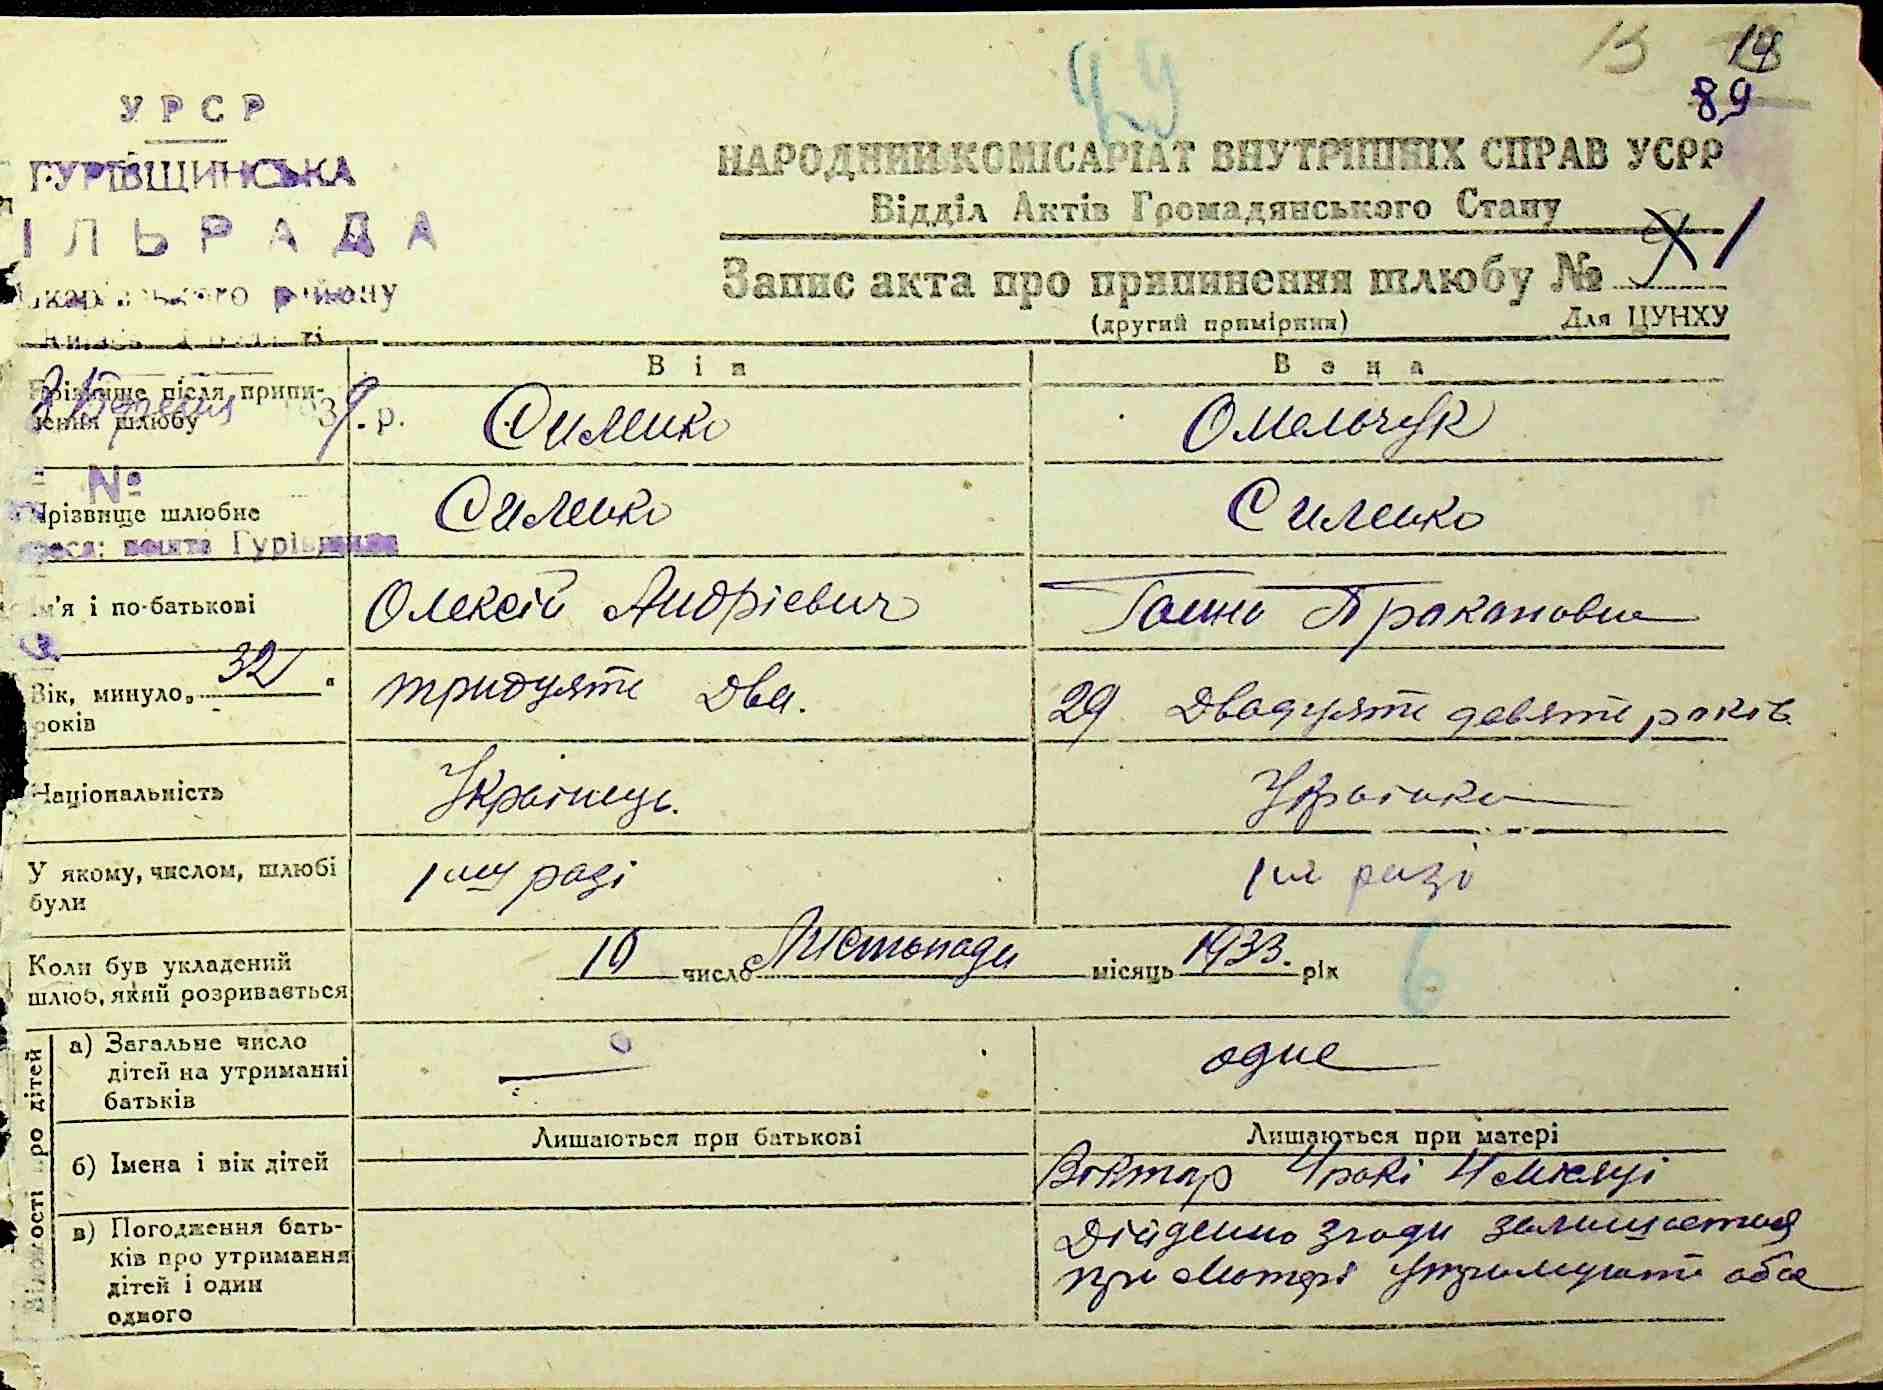 13 14
89
29
УРСР
ГУРІВЩИНСЬКА
ІЛЬРАДА
району
НАРОДНИЙ КОМІСАРІАТ ВНУТРІШНІХ СПРАВ УСРР
Відділ Актів Громадянського Стану
Запис акта про припинення шлюбу № 1
(другий примірник) Для ЦУНХУ
Він Вона
Прізвище після припинення шлюбу
Березня 1939 р.
Силенко Омельчук
№
Прізвище шлюбне Силенко Силенко
пошта Гурівщина
Ім'я і по-батькові Олексій Андрієвич Ганна
Вік, минуло „32“ років тридцять два. 29 Двадцять девять років
Національність Українець. Українка
У якому, числом, шлюбі були 1шу разі разі
Коли був укладений шлюб, який розривається
10 число Листопада місяць 1933. рік
6
Відомості про дітей
а) Загальне число дітей на утриманні батьків
0 одне
Лишаються при батькові Лишаються при матері
б) Імена і вік дітей Віктор 4 роки 4 місяці
в) Погодження батьків про утримання дітей і один одного
Дійдено згоди залишається
при Матері Утримувати обоє